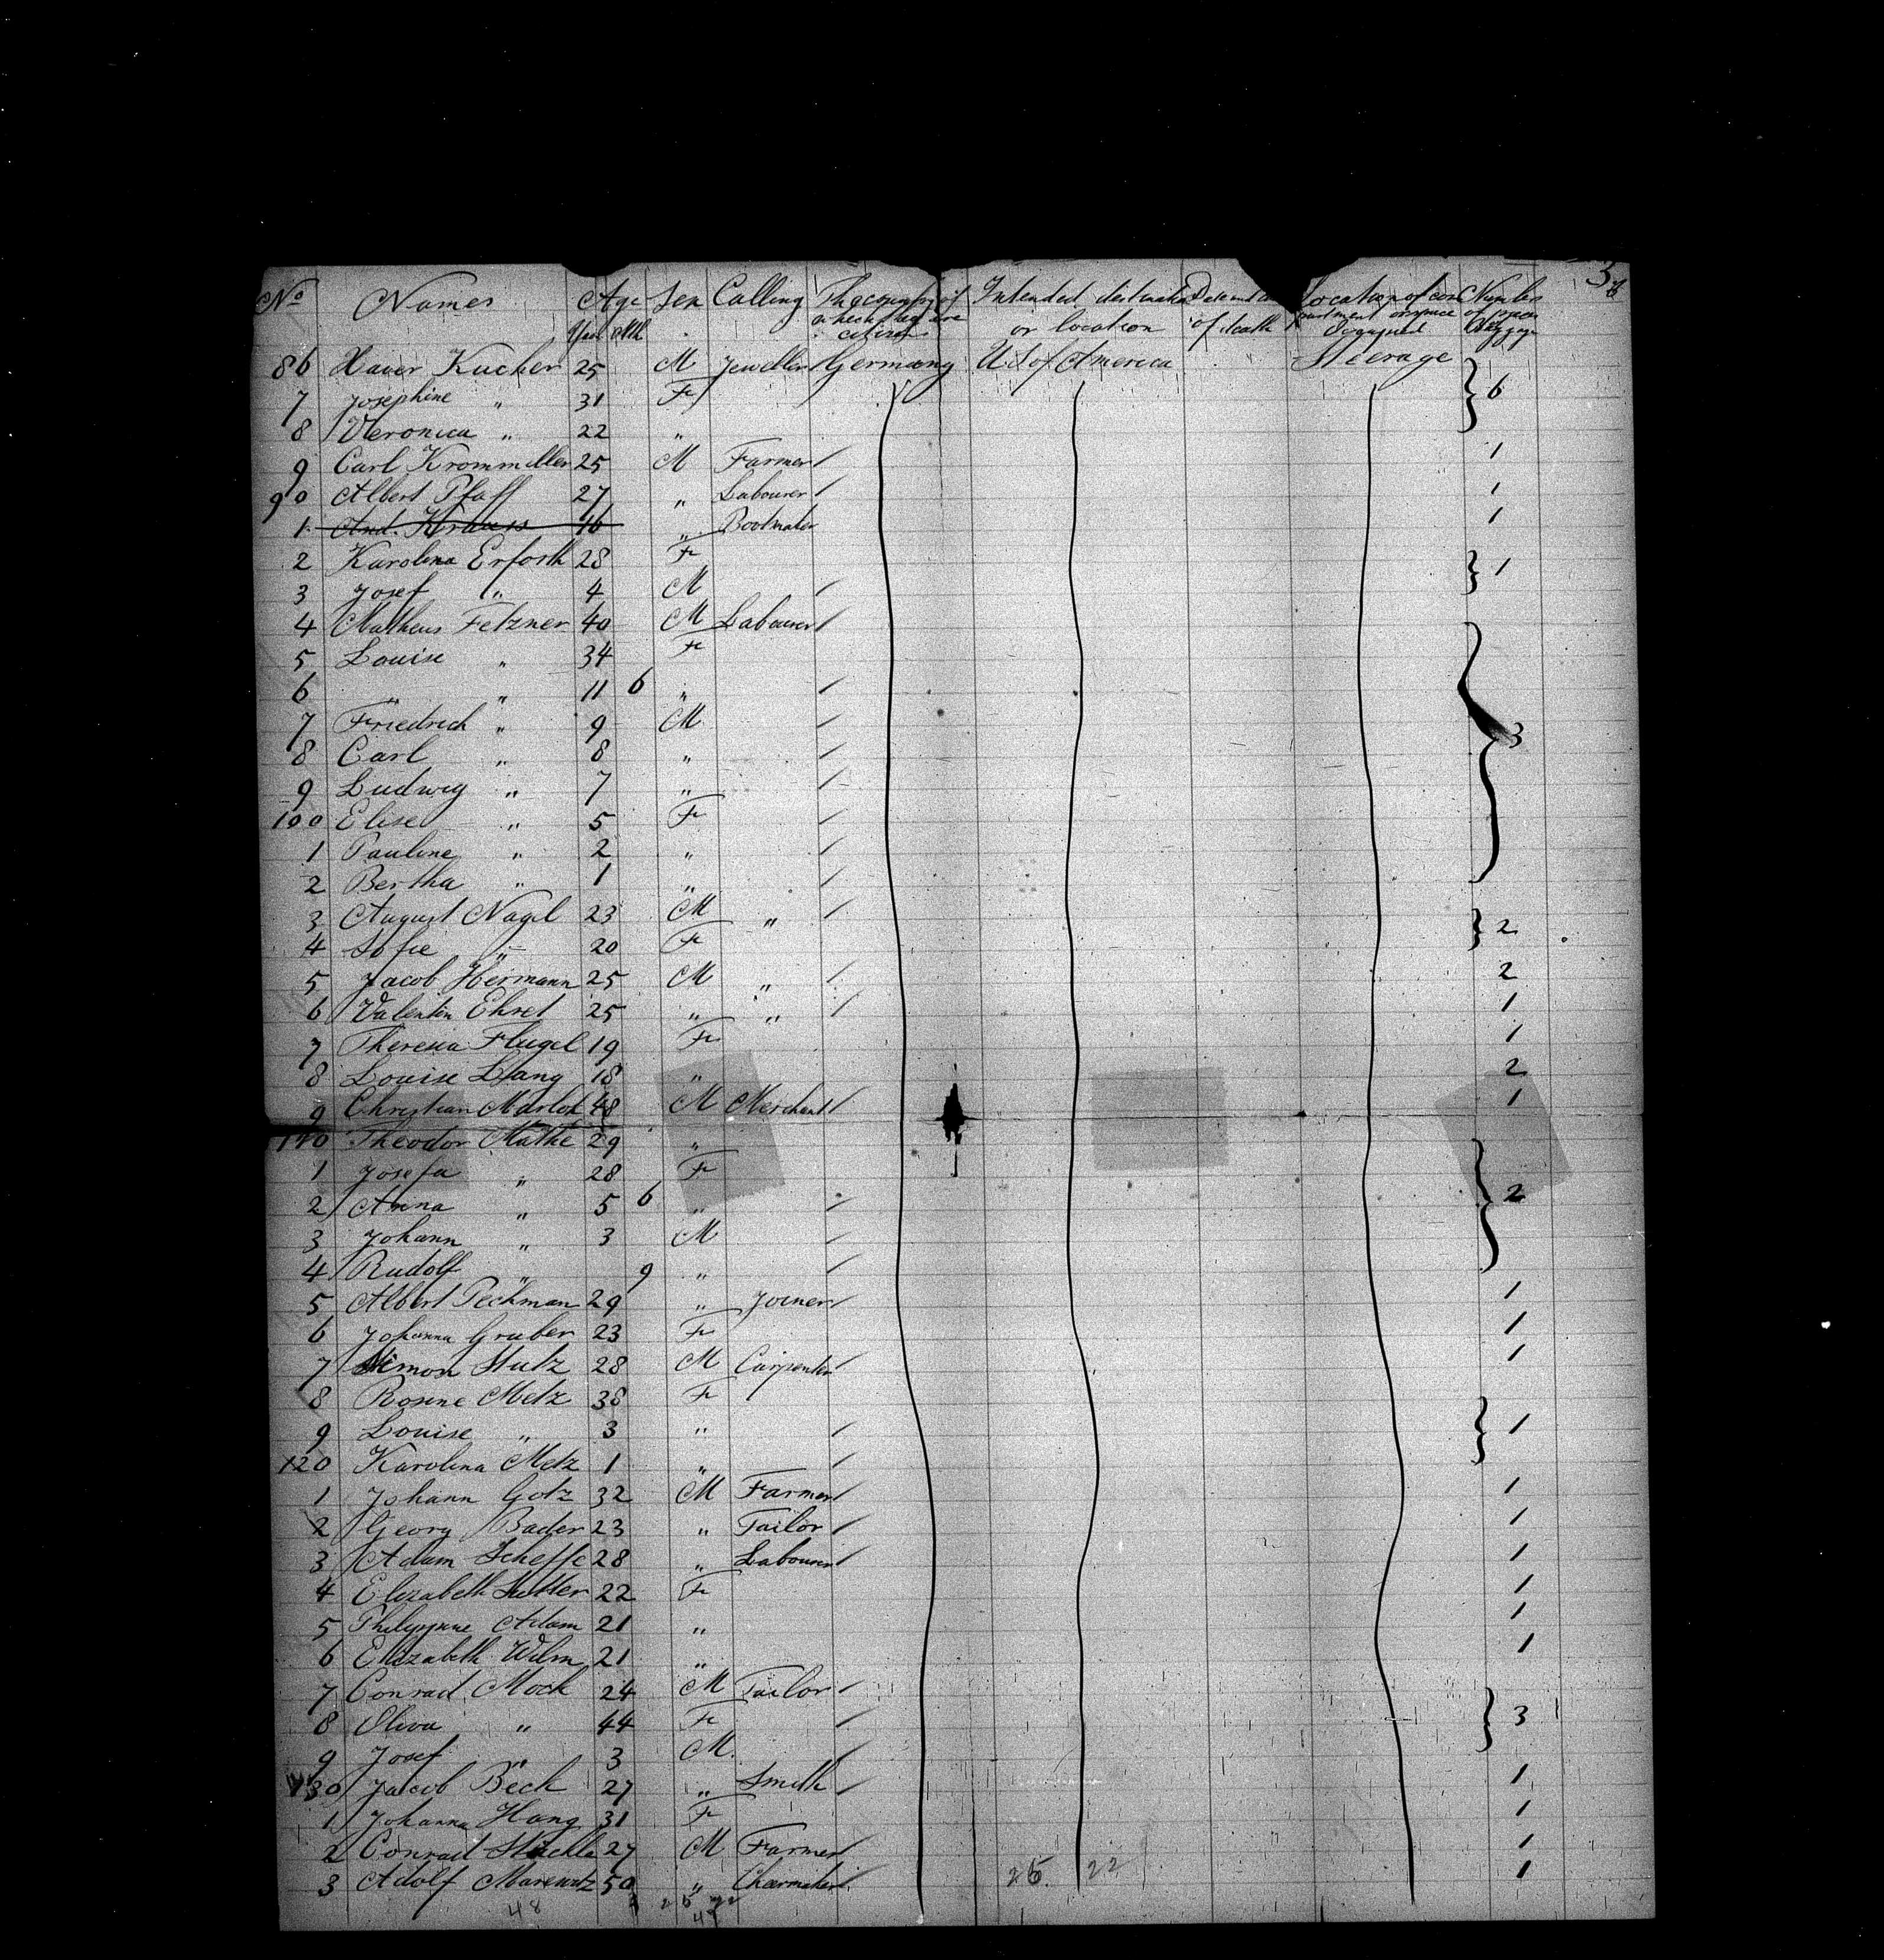 3
No Names Age Sex Calling The country of which they are citizens Intended destination or location Date and of death Location of compartment or space occupied Number of pieces
86 Xaver Kucher 25 M Jeweller Germany U.S of America Steerage
7 Josephine " 31 Fr } 6
8 Veronica " 22 "
9 Carl Krommiller 25 M Farmer / 1
90 Albert Pfaff 27 " Labourer / 1
1 And. Krauss 46 " Bootmaker 1
2 Karolina Erforth 28 Fr } 1
3 Josef " 4 M /
4 Matheus Felzner 40 M Labourer /
5 Louise " 34 Fr
6 " " 11 6 " /
7 Friedrich " 9 M / } 3
8 Carl " 8 " /
9 Ludwig " 7 " /
100 Elise " 5 Fr /
1 Pauline " 2 " /
2 Bertha " 1 " /
3 August Nagel 23 M " / } 2
4 Sofie " 20 Fr
5 Jacob Hermann 25 M " / 2
6 Valentin Ehret 25 " " / 1
7 Theresia Flugel 19 Fr 1
8 Louise Lang 18 " 2
9 Christian Marloh 48 M Merchant / 1
110 Theodor Mathe 29 "
1 Josefa " 28 Fr
2 Anna " 5 6 " / } 2
3 Johann " 3 M /
4 Rudolf " 9 " /
5 Albert Peckman 29 " Joiner / 1
6 Johanna Gruber 23 Fr 1
7 Simon Stutz 28 M Carpenter / 1
8 Rosine Metz 38 Fr
9 Louise " 3 " / } 1
120 Karolina Metz 1 " /
1 Johann Gotz 32 M Farmer / 1
2 Georg Bader 23 " Tailor / 1
3 Adam Scheffe 28 " Labourer / 1
4 Elizabeth Sutter 22 Fr 1
5 Philippine Adam 21 " 1
6 Elizabeth Wilm 21 " 1
7 Conrad Mock 24 M Tailor /
8 " 44 Fr / } 3
9 Josef " 3 M. /
130 Jacob Beck 27 " Smith / 1
1 Johanna Hang 31 Fr 1
2 Conrad 27 M Farmer / 1
3 Adolf 50 " / 1
25. 22
48